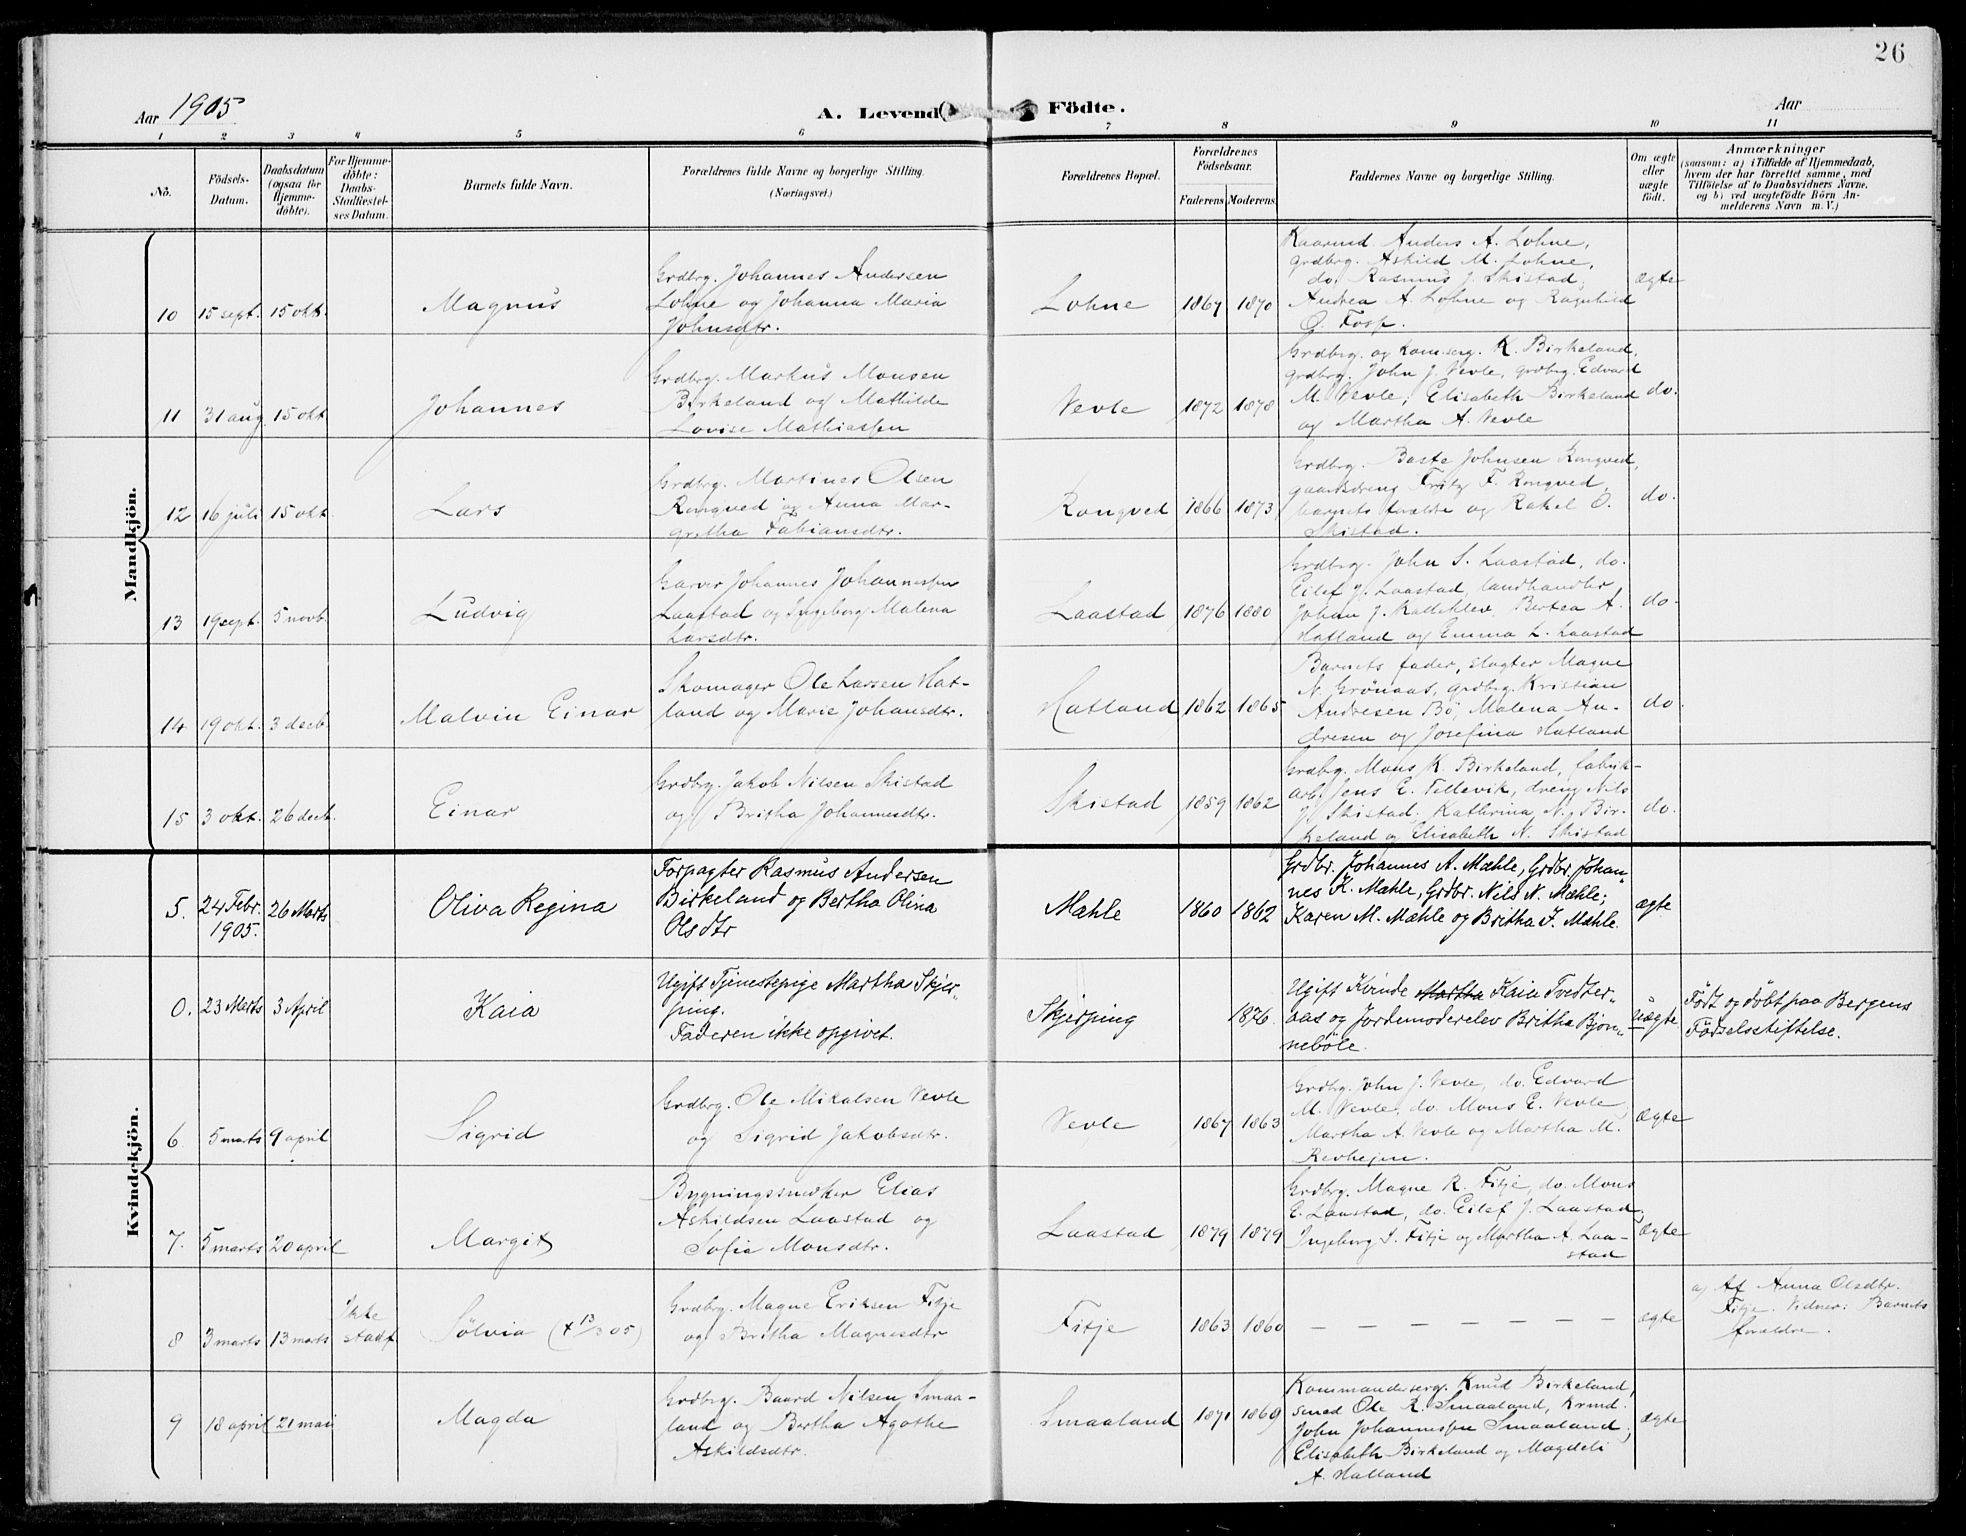 26
Aar 1905
A. Levende Födte.
Aar
1 2 3 4 5 6 7 8 9 10 11
No.
Födsels-
Datum.
Daabsdatum
(ogsaa for
Hjemme-
döbte).
For Hjemme-
döbte:
Daabs-
Stadfæstel-
ses Datum.
Barnets fulde Navn.
Forældrenes fulde Navne og borgerlige Stilling.
(Næringsvei.)
Forældrenes Bopæl.
Forældrenes
Födselsaar.
Faderens Moderens
Faddernes Navne og borgerlige Stilling.
Om ægte
eller
uægte
födt.
Anmærkninger
(saasom: a) i Tilfælde af Hjemmedaab,
hvem der har forrettet samme, med
Tilföielse af to Daabsvidners Navne,
og b) ved uægtefödte Börn An-
melderens Navn m. V.)
Mandkjön.
10 15 sept. 15 okt.
Magnus
Grdbrg. Johannes Andersen
Lohne og Johanna Maria
Johnsdtr.
Lohne 1867 1870
Kaarmd. Anders A. Lohne,
grdbrg. Askild M. Lohne,
do. Rasmus J. Skistad,
Andrea A. Lohne og Ragnhild
O. Fosse.
ægte
11 31 aug. 15 okt.
Johannes
Grdbrg. Markus Monsen
Birkeland og Mathilde
Lovise Mathiassen
Vevle 1872 1878
Grdbrg. og Kom.serg. K. Birkeland,
grdbrg. John J. Vevle, grdbrg. Edvard
M. Vevle, Elisabeth Birkeland
og Martha A. Vevle
do.
12 16 juli 15 okt.
Lars
Grdbrg. Martines Olsen
Rongved og Anna Mar-
gretha Fabiansdtr.
Rongved 1866 1873
Grdbrg. Baste Johnsen Rongved,
gaardsdreng Fritz F. Rongved,
barnets forældre og Rakel O.
Skistad.
do.
13 19 sept. 5 novb.
Ludvig
Garver Johannes Johannessen
Laastad og Ingeborg Malena
Larsdtr.
Laastad 1876 1880
Grdbrg. John S. Laastad, do.
Eilef J. Laastad, landhandler
Johan J. Kalleklev. Bertea A.
Hatland og Emma L. Laastad
do.
14 19 okt. 3 decb.
Malvin Einar
Skomager Ole Larsen Hat-
land og Marie Johansdtr.
Hatland 1862 1865
Barnets fader, slagter Magne
N. Grönaas, grdbrg. Kristian
Andresen Bö, Malena An-
dresen og Josefina Hatland
do.
15 3 okt. 26 decb.
Einar
Grdbrg. Jakob Nilsen Skistad
og Britha Johannesdtr.
Skistad 1859 1862
Grdbrg. Mons K. Birkeland, fabrik-
arb. Jens E. Tellevik, dreng Nils
J. Skistad. Kathrina N. Bir-
keland og Elisabeth N. Skistad
do.
Kvindekjön.
5. 24 Febr. 1905. 26 Marts
Oliva Regina
Forpagter Rasmus Andersen
Birkeland og Bertha Olina
Olsdtr
Mæhle 1860 1862
Grdbr. Johannes A. Mæhle, Grdbr. Johan-
nes K. Mæhle, Grdbr. Nils N. Mæhle;
Karen M. Mæhle og Britha J. Mæhle.
ægte
0. 23 Marts 3 April
Kaia
Ugift Tjenestepige Martha Skjer-
ping.
Faderen ikke opgivet.
Skjerping 1876.
Ugift Kvinde Martha Kaia Tvedter-
aas og Jordemoderelev Britha Bjon-
nebøle.
uægte
Födt og döbt paa Bergens
Födselsstiftelse.
6 5 marts 9 april
Sigrid
Grdbrg. Ole Mikalsen Vevle
og Sigrid Jakobsdtr.
Vevle 1867 1863
Grdbrg. John J. Vevle, do. Edvard
M. Vevle, do. Mons E. Vevle,
Martha A. Vevle og Martha M.
Revheien.
ægte
7. 5 marts 20 april
Margit
Bygningssnedker Elias
Askildsen Laastad og
Sofie Monsdtr.
Laastad 1879 1879
Grdbrg. Magne R. Fitje, do. Mons
E. Laastad, do. Eilef J. Laastad,
Ingeborg J. Fitje og Martha A. Laa-
stad
ægte
8 3 marts 13 marts Ikke
stadf
Sölvia (+ 13/3 05)
Grdbrg. Magne Eriksen Fitje
og Britha Magnesdtr
Fitje 1863 1860
– – – – – – –
ægte
a) Af Anna Olsdtr.
Fitje. Vidner: Barnets
forældre.
9 18 april 21 mai
Magda
Grdbrg. Baard Nilsen Smaa-
land og Bertha Agothe
Askildsdtr.
Smaaland 1871 1869
Kommandersерg. Knud Birkeland,
smed Ole R. Smaaland, Krmd.
John Johannessen Smaaland,
Elisabeth Birkeland og Magdeli
A. Hatland
ægte